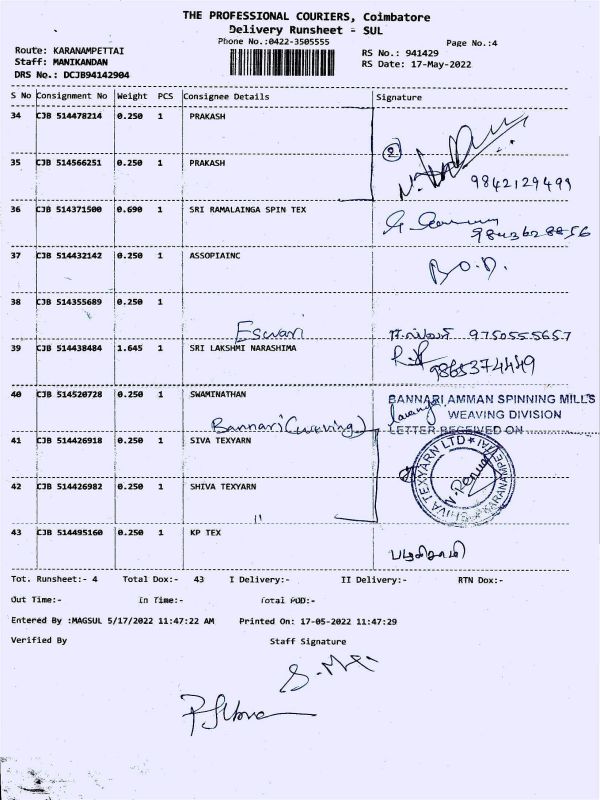 THE PROFESSIONAL COURIERS, Coimbatore
Delivery Runsheet - SUL
Phone No.:0422-3505555
Page No.:4
Route: KARANAMPETTAI
Staff: MANIKANDAN
DRS No.: DCJB94142904
RS No.: 941429
RS Date: 17-May-2022
S No Consignment No Weight PCS Consignee Details Signature
34 CJB 514478214 0.250 1 PRAKASH
2
35 CJB 514566251 0.250 1 PRAKASH
9842129499
36 CJB 514371500 0.690 1 SRI RAMALAINGA SPIN TEX
9843628856
37 CJB 514432142 0.250 1 ASSOPIAINC
B.O.D.
38 CJB 514355689 0.250 1
Eswari 9750555657
39 CJB 514438484 1.645 1 SRI LAKSHMI NARASHIMA
9865374449
40 CJB 514520728 0.250 1 SWAMINATHAN
BANNARI AMMAN SPINNING MILLS
WEAVING DIVISION
LETTER RECEIVED ON
Bannari (weaving)
41 CJB 514426918 0.250 1 SIVA TEXYARN
SHIVA TEXYARN LTD ★ KARANAMPETTAI ★
N. Renuga
42 CJB 514426982 0.250 1 SHIVA TEXYARN
"
43 CJB 514495160 0.250 1 KP TEX
Tot. Runsheet:- 4 Total Dox:- 43 I Delivery:- II Delivery:- RTN Dox:-
Out Time:- In Time:- Total POD:-
Entered By :MAGSUL 5/17/2022 11:47:22 AM Printed On: 17-05-2022 11:47:29
Verified By Staff Signature